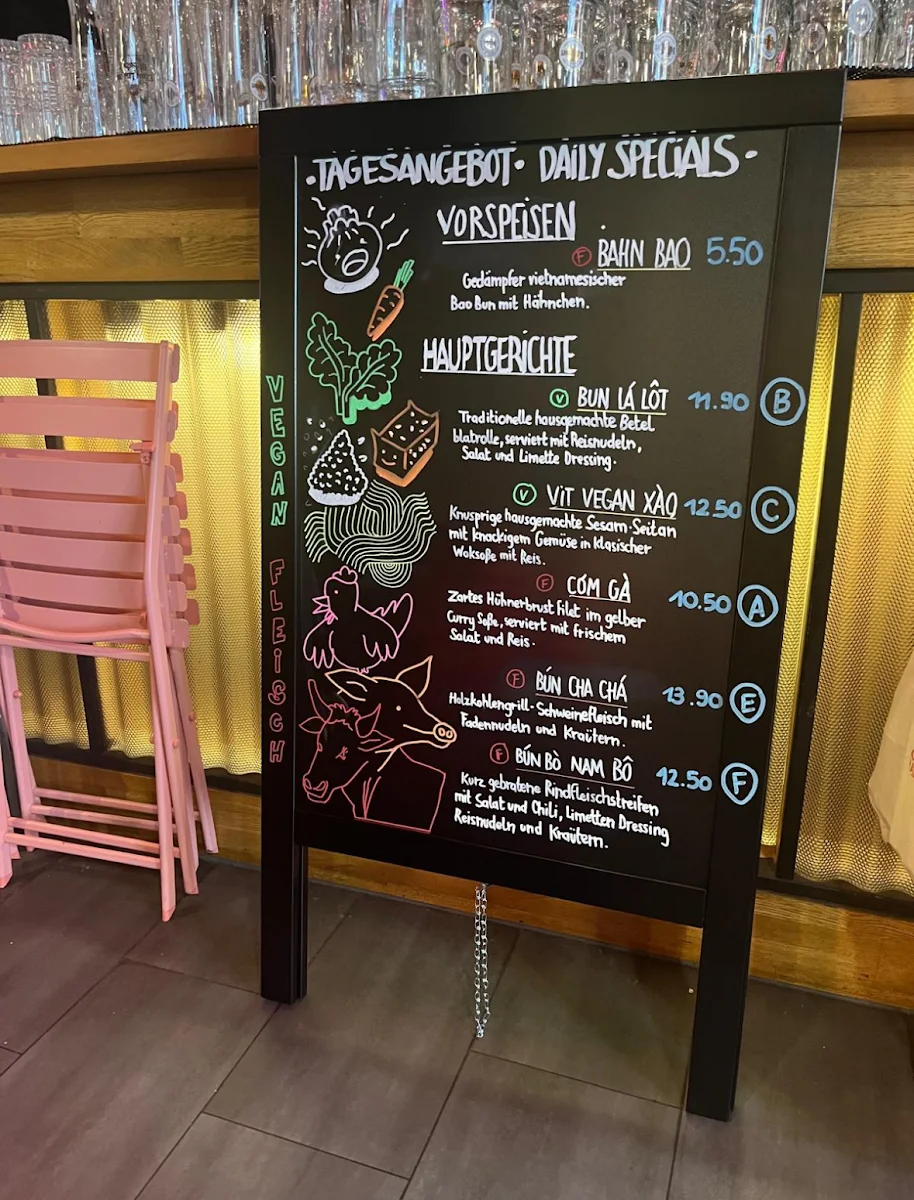 ·TAGESANGEBOT· DAILY SPECIALS·
VORSPEISEN
F BAHN BAO 5.50
Gedämpfer vietnamesischer
Bao Bun mit Hähnchen.
HAUPTGERICHTE
V BUN LÁ LÔT 11.90 B
Traditionelle hausgemachte Betel
blatrolle, serviert mit Reisnudeln,
Salat und Limette Dressing.
V ViT VEGAN XÀO 12.50 C
Knusprige hausgemachte Sesam-Seitan
mit knackigem Gemüse in Klasischer
Woksoße mit Reis.
F CÓM GÀ 10.50 A
Zartes Hühnerbrust filet im gelber
Curry Soße, serviert mit frischem
Salat und Reis.
F BÚN CHA CHÁ 13.90 E
Holzkohlengrill-Schweinefleisch mit
Fadennudeln und Kraütern.
F BÚN BÒ NAM BÔ 12.50 F
Kurz gebratene Rindfleischstreifen
mit Salat und Chili, Limetten Dressing
Reisnudeln und Kraütern.
VEGAN
FLEiSCH